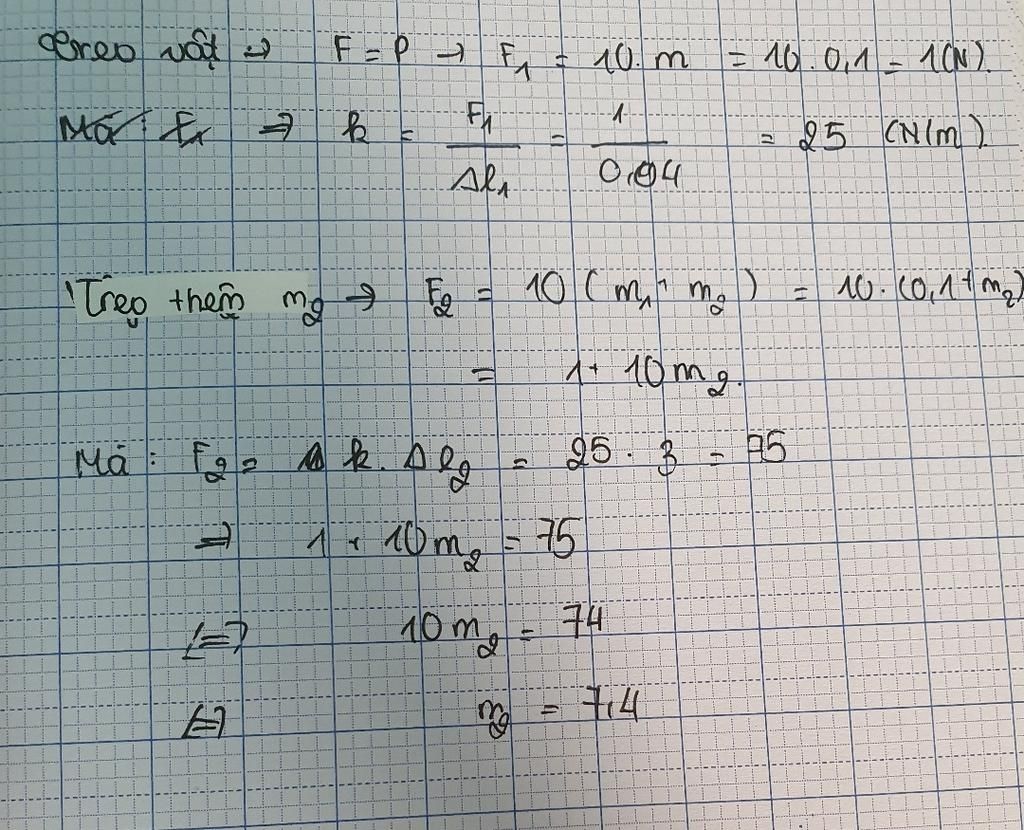 Treo vật → F = P → F₁ = 10.m = 10.0,1 = 1(N).
⇒ k = F₁/Δl₁ = 1/0,04 = 25 (N/m)
Treo thêm m₂ → F₂ = 10(m₁+m₂) = 10.(0,1+m₂)
= 1+10m₂.
Mà: F₂ = k.Δl₂ = 25.3 = 75
⇒ 1+10m₂ = 75
⇔ 10m₂ = 74
⇔ m₂ = 7,4